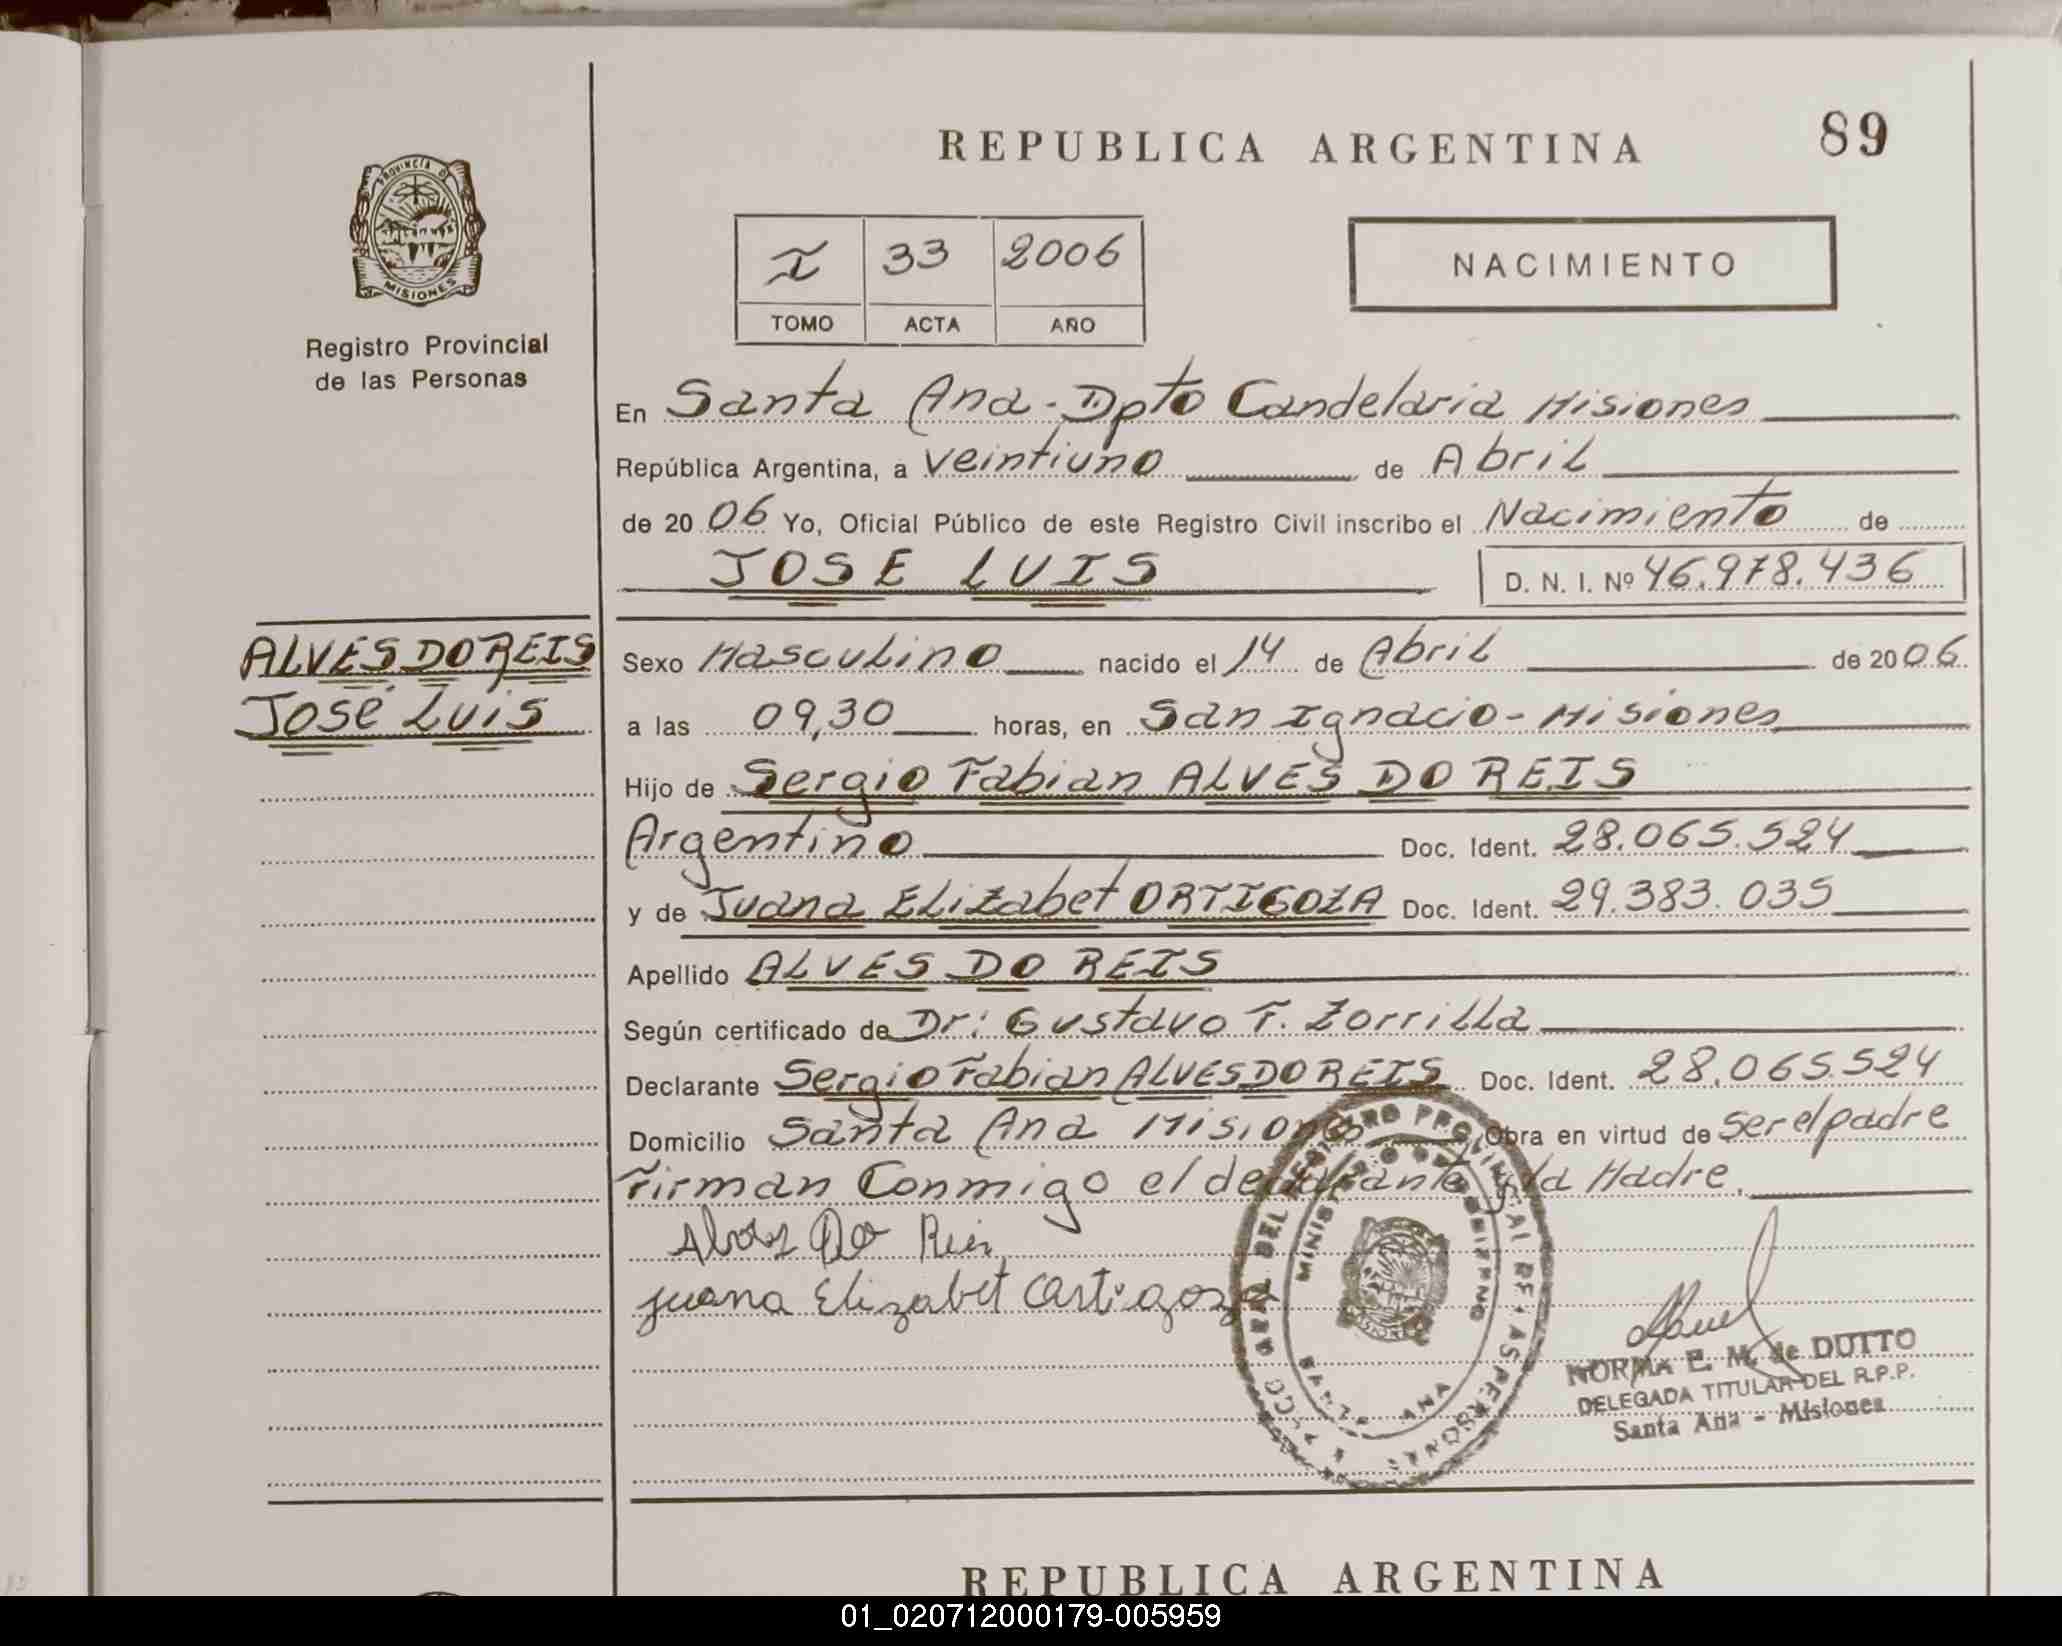 REPUBLICA ARGENTINA
89
PROVINCIA D
MISIONES
Registro Provincial
de las Personas
I 33 2006
TOMO ACTA AÑO
NACIMIENTO
En Santa Ana - Dpto Candelaria Misiones
República Argentina, a veintiuno de Abril
de 2006 Yo, Oficial Público de este Registro Civil inscribo el Nacimiento de
JOSE LUIS D. N. I. Nº 46.978.436
ALVES DO REIS
José Luis
Sexo Masculino nacido el 14 de Abril de 2006.
a las 09,30 horas, en San Ignacio - Misiones
Hijo de Sergio Fabian ALVES DO REIS
Argentino Doc. Ident. 28.065.524
y de Juana Elizabet ORTIGOZA Doc. Ident. 29.383.035
Apellido ALVES DO REIS
Según certificado de Dr: Gustavo F. Zorrilla
Declarante Sergio Fabian ALVES DO REIS Doc. Ident. 28.065.524
Domicilio Santa Ana Misiones Obra en virtud de ser el padre
Firman Conmigo el declarante y la Madre.
Alves Do Reis
Juana Elizabet Ortigoza
DEL REGISTRO PROVINCIAL DE LAS PERSONAS
MINISTERIO DE GOBIERNO
SANTA ANA
NORMA E. M. de DUTTO
DELEGADA TITULAR DEL R.P.P.
Santa Ana - Misiones
REPUBLICA ARGENTINA
01_020712000179-005959